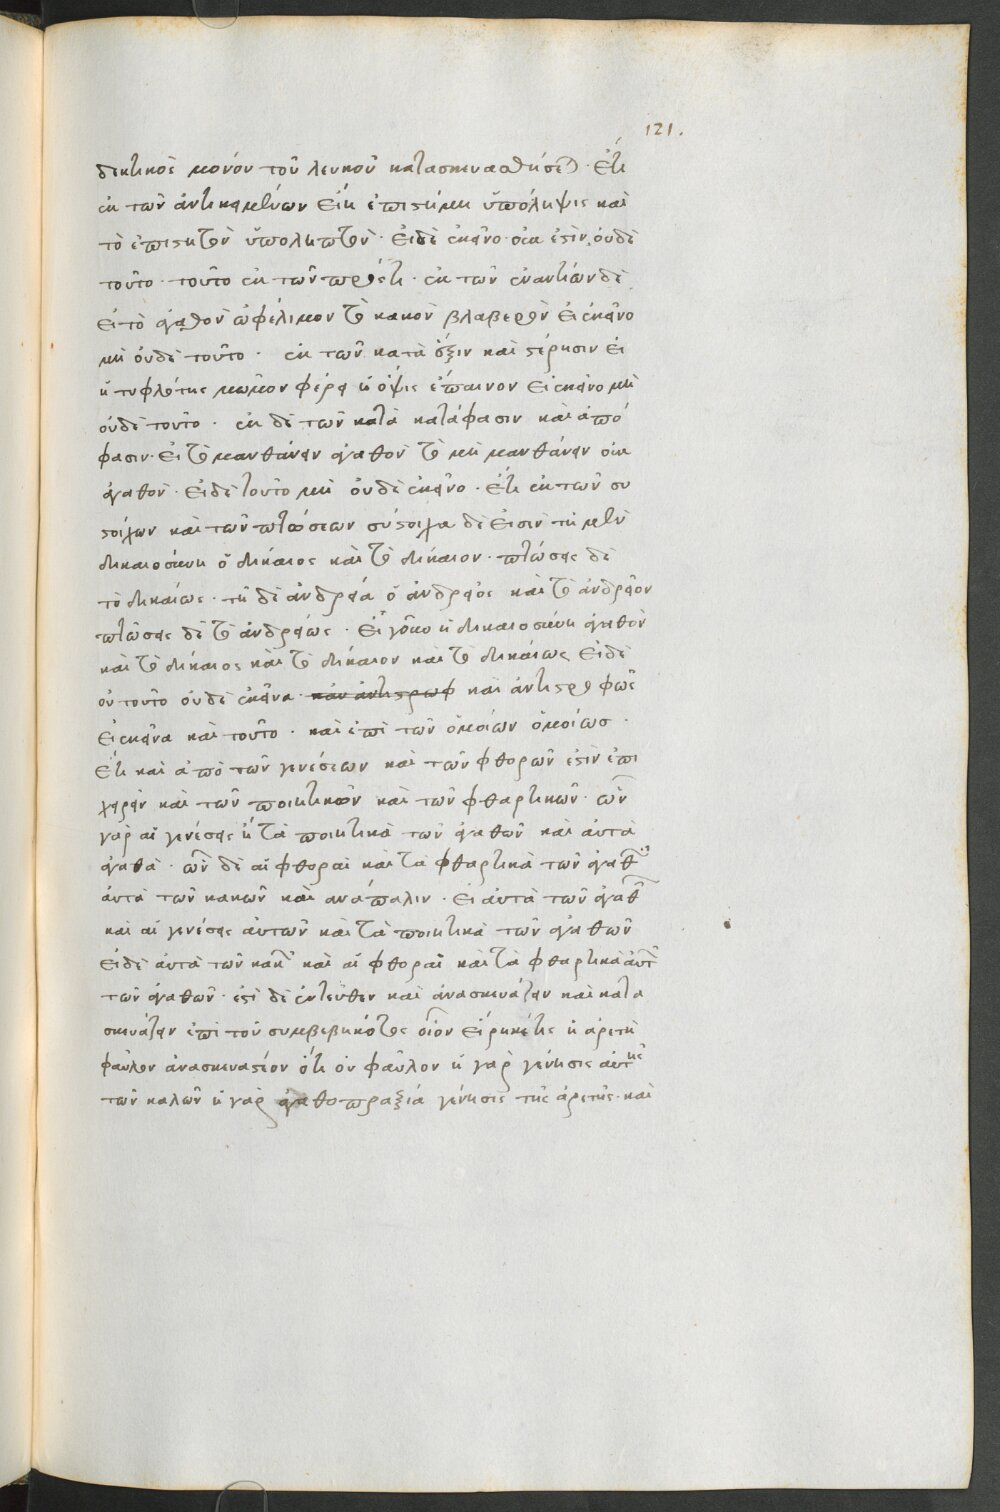 121.
δεκτικὸς μονόν τοῦ λευκοῦ κατασκευασθήσεται. ἔτι
ἐκ τῶν ἀντικειμένων εἰ ἡ ἐπιστήμη ὑπόληψις καὶ
τὸ ἐπιστητὸν ὑποληπτὸν· εἰ δὲ ἐκεῖνο οὐκ ἐστὶν, οὐδὲ
τοῦτο· τοῦτο ἐκ τῶν πρός τι· ἐκ τῶν ἐναντίων δὲ
εἰ τὸ ἀγαθὸν ὠφέλιμον τὸ κακὸν βλαβερὸν εἰ ἐκεῖνο
μὴ οὐδὲ τοῦτο· ἐκ τῶν κατὰ ἕξιν καὶ στέρησιν εἰ
ἡ τυφλότης μῶμον φέρει ἡ ὄψις ἔπαινον εἰ ἐκεῖνο μὴ
οὐδὲ τοῦτο· ἐκ δὲ τῶν κατὰ κατάφασιν καὶ ἀπό
φασιν· εἰ τὸ μανθάνειν ἀγαθὸν τὸ μὴ μανθάνειν οὐκ
ἀγαθὸν· εἰ δὲ τοῦτο μὴ οὐδὲ ἐκεῖνο· ἔτι ἐκ τῶν συ
στοίχων καὶ τῶν πτώσεων σύστοιχα δὲ εἰσιν τῇ μὲν
δικαιοσύνη ὁ δίκαιος καὶ τὸ δίκαιον· πτώσεις δὲ
τὸ δικαίως· τῇ δὲ ἀνδρεία ὁ ἀνδρεῖος καὶ τὸ ἀνδρεῖον
πτῶσεις δὲ τὸ ἀνδρείως· εἰ γοῦν ἡ δικαιοσύνη ἀγαθὸν
καὶ τὸ δίκαιος καὶ τὸ δίκαιον καὶ τὸ δικαίως εἰ δὲ
οὐ τοῦτο οὐδὲ ἐκεῖνα· καὶ ἀντιστρόφως
εἰ ἐκεῖνα καὶ τοῦτο· καὶ ἐπὶ τῶν ὁμοίων ὁμοίωσ·
ἔτι καὶ ἀπὸ τῶν γενέσεων καὶ τῶν φθορῶν ἐστὶν ἐπι
χειρεῖν καὶ τῶν ποιητικῶν καὶ τῶν φθαρτικῶν· ὧν
γὰρ αἱ γενέσεις ἢ τὰ ποιητικὰ τῶν ἀγαθῶν καὶ αὐτὰ
ἀγαθὰ· ὧν δὲ αἱ φθοραὶ καὶ τὰ φθαρτικὰ τῶν ἀγαθῶν
αὐτὰ τῶν κακῶν καὶ ἀνάπαλιν· εἰ αὐτὰ τῶν ἀγαθῶν
καὶ αἱ γενέσεις αὐτῶν καὶ τὰ ποιητικὰ τῶν ἀγαθῶν
εἰ δὲ αὐτὰ τῶν κακῶν καὶ αἱ φθοραὶ καὶ τὰ φθαρτικὰ αὐτῶν
τῶν ἀγαθῶν· ἔστι δὲ ἐντεῦθεν καὶ ἀνασκευάζειν καὶ κατα
σκευάζειν ἐπὶ τοῦ συμβεβηκότος οἷον εἰρηκότος ἡ ἀρετὴ
φαῦλον ἀνασκευαστέον ὅτι οὐ φαῦλον ἡ γὰρ γένησις αὐτῆς
τῶν καλῶν ἡ γὰρ ἀγαθοπραξιά γένησις τῆς ἀρετῆς· καὶ